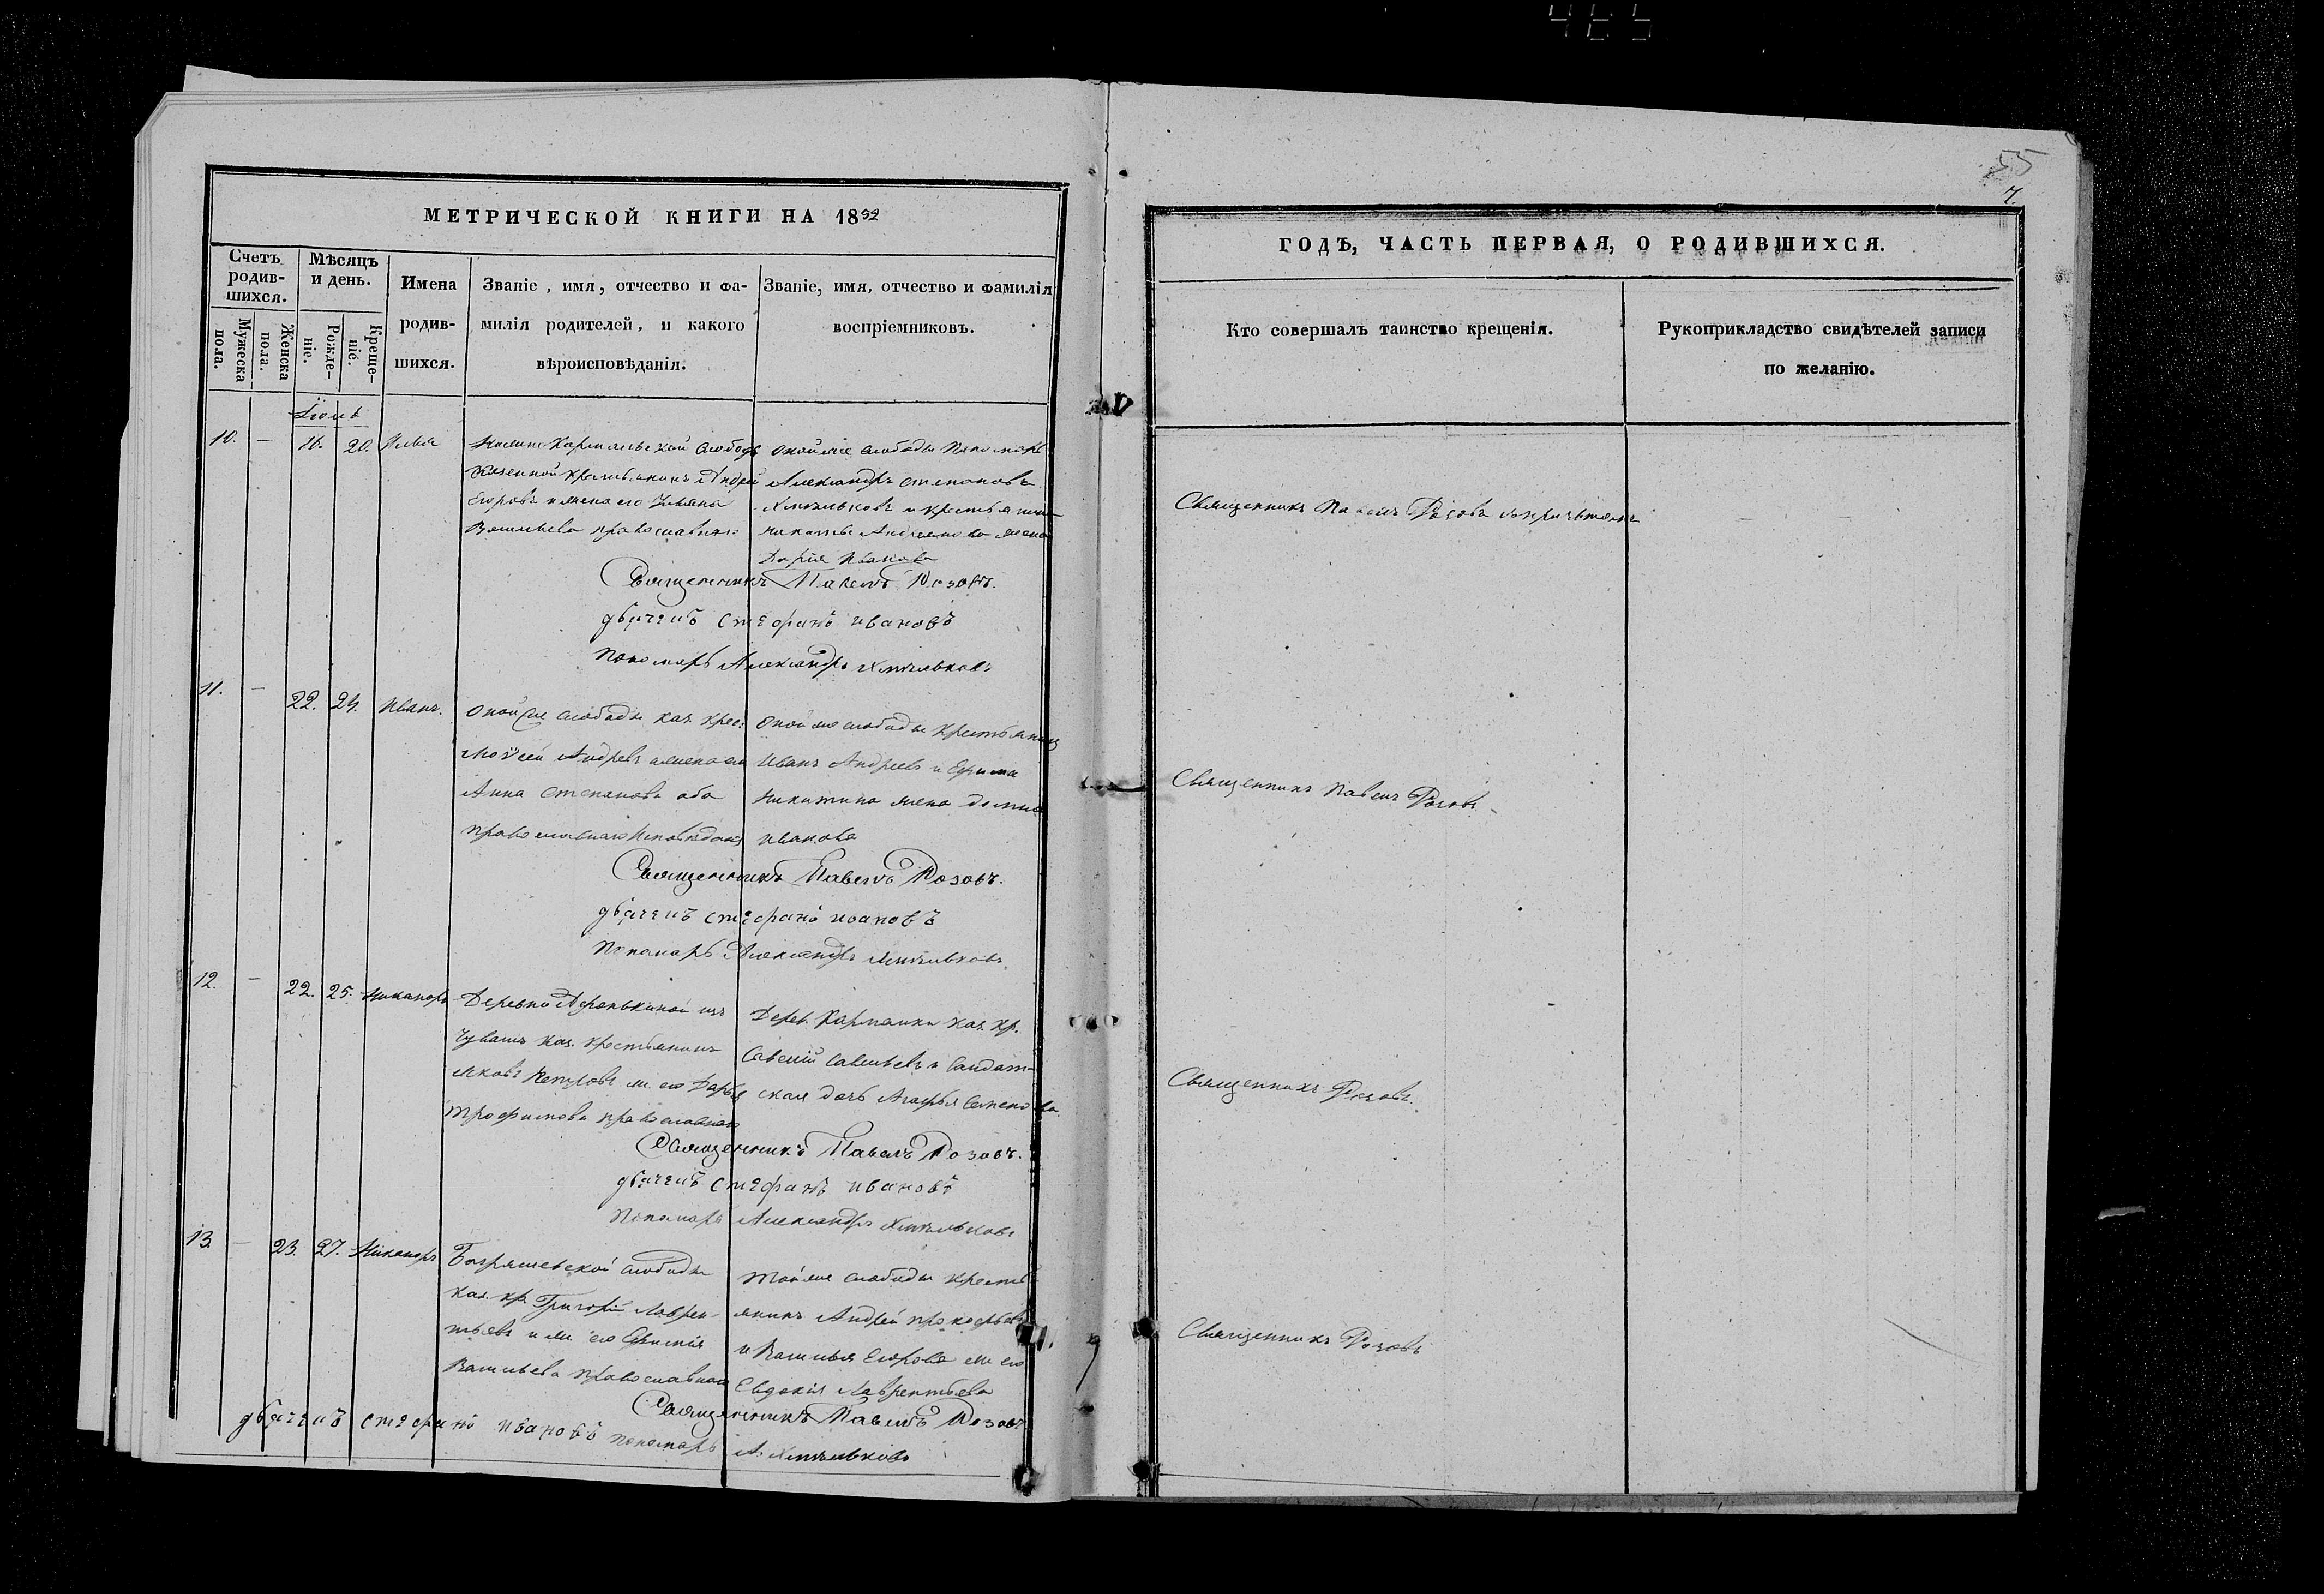 55
7.
МЕТРИЧЕСКОЙ КНИГИ НА 1892
Счетъ родив-шихся.
Мѣсяцъ и день.
Мужеска пола.
Женска пола.
Рожде-ніе.
Креще-ніе.
Имена
родив-
шихся.
Званіе, имя, отчество и фа-
милія родителей, и какого
вѣроисповѣданія.
Званіе, имя, отчество и фамилія
воспріемниковъ.
Іюнь
10. — 16. 20. Илья
слободы
крестьянинъ Андрей
Егоровъ и жена его Ульяна
Васильева православные
оной же слободы Пономарь
Александръ Степановъ
Хмѣльковъ и крестьянина
Никиты жена
Дарья Иванова
Священникъ Павелъ Розовъ.
дьячекъ стефанъ ивановъ
Пономарь Александръ Хмѣльковъ
11. — 22. 24. Иванъ.
Оной же слободы каз. крес.
Мойсей Андревъ и жена его
Анна Степанова оба
православнаго исповѣданія
Оной же слободы крестьянинъ
Иванъ Андреевъ и Ефима
Никитина жена Домна
Иванова
Священникъ Павелъ Розовъ.
дьячекъ стефанъ ивановъ
Пономарь Александръ Хмѣльковъ
12. — 22. 25. Никаноръ
Деревни Афонькиной изъ
Чувашъ каз. крестьянинъ
Яковъ Петровъ ж. его Дарья
Трофимова православные
Дерев. Кармалки каз. кр.
Савелій Савельевъ и Солдат-
ская дочь Агафья Семенова
Священникъ Павелъ Розовъ.
дьячекъ стефанъ ивановъ
Пономарь Александръ Хмѣльковъ
13. — 23. 27. Никаноръ
слободы
каз. кр. Григорій Лаврен-
тьевъ и ж. его Ефимія
Васильева православные
Той же слободы кресть-
янинъ Андрей Прокофьевъ
и Василья Егорова ж. его
Евдокія Лаврентьева
Священникъ Павелъ Розовъ
дьячекъ стефанъ ивановъ пономарь А. Хмѣльковъ
ГОДЪ, ЧАСТЬ ПЕРВАЯ, О РОДИВШИХСЯ.
Кто совершалъ таинство крещенія.
Рукоприкладство свидѣтелей записи
по желанію.
Священникъ Павелъ Розовъ съ причтомъ
Священникъ Павелъ Розовъ
Священникъ Розовъ.
Священникъ Розовъ